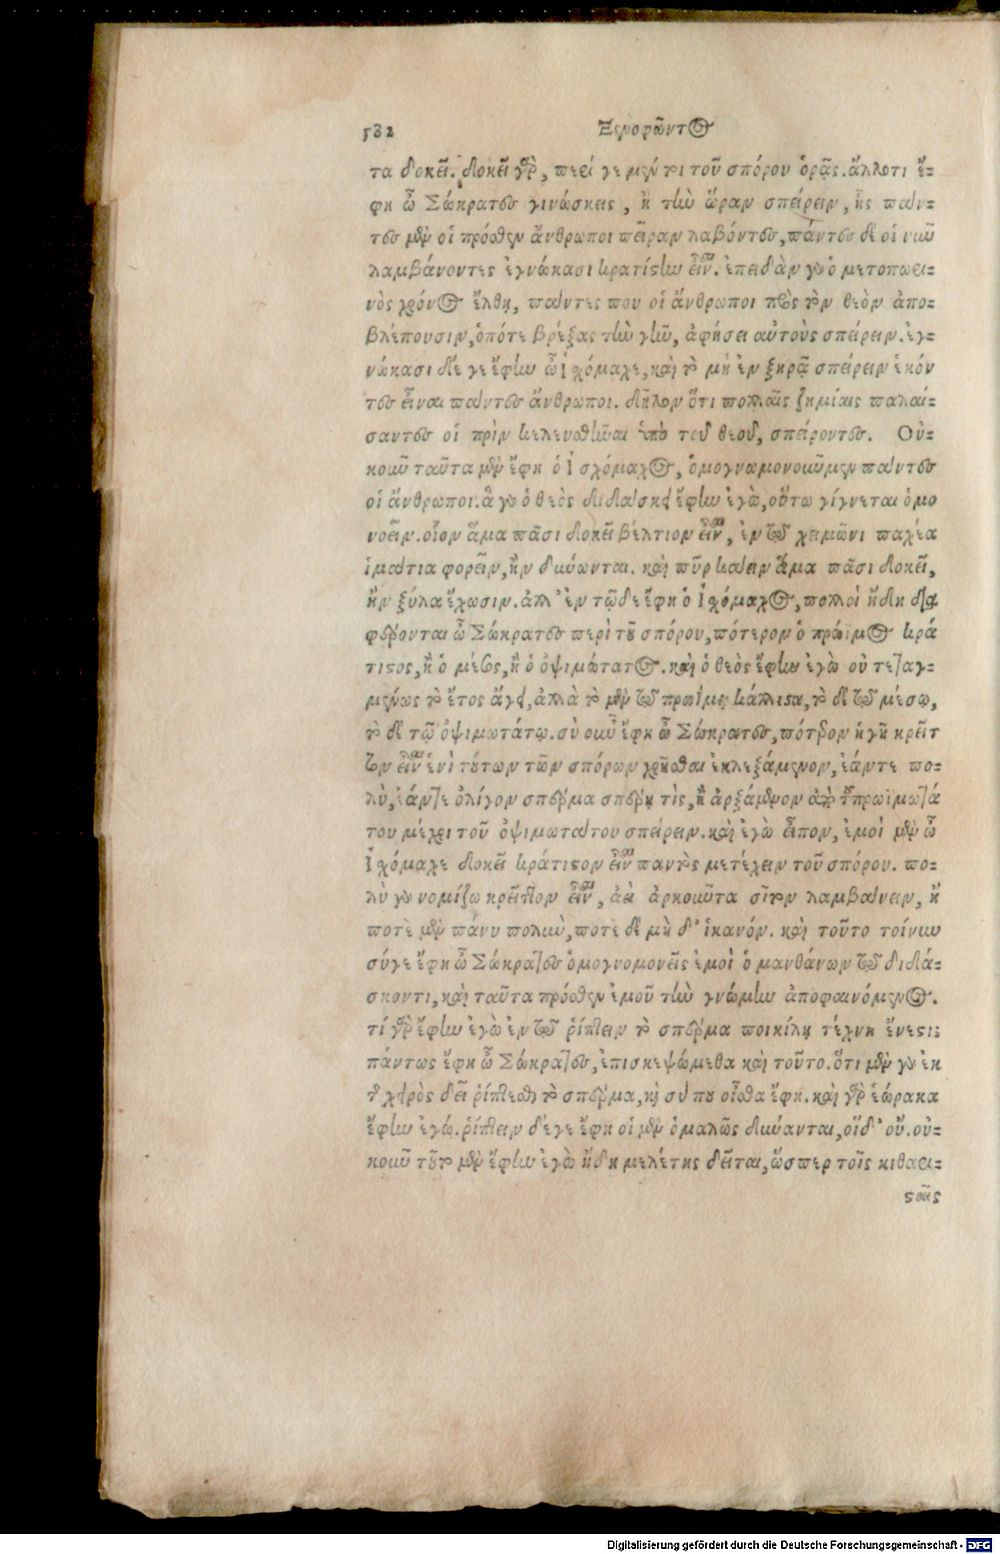 532 Ξενοφῶντος
τα δοκεῖ. δοκεῖ γὰρ, περί γε μέν τοι τοῦ σπόρου ὁρᾷς. ἄλλοτι ἔ=
φη ὦ Σώκρατες γινώσκεις, ἢ τὴν ὥραν σπείρειν, ἧς πάν=
τες μὲν οἱ πρόσθεν ἄνθρωποι πεῖραν λαβόντες, πάντες δὲ οἱ νῦν
λαμβάνοντες ἐγνώκασι κρατίστην εἶναι. ἐπειδὰν γὰρ ὁ μετοπωρι=
νὸς χρόνος ἔλθῃ, πάντες που οἱ ἄνθρωποι πρὸς τὸν θεὸν ἀπο=
βλέπουσιν, ὁπότε βρέξας τὴν γῆν, ἀφήσει αὐτοὺς σπείρειν. ἐγ=
νώκασι δέ γε ἔφην ὦ Ἰχόμαχε, καὶ τὸ μὴ ἐν ξηρᾷ σπείρειν ἑκόν
τες εἶναι πάντες ἄνθρωποι. δῆλον ὅτι πολλαῖς ζημίαις παλαί=
σαντες οἱ πρὶν κελευσθῆναι ὑπὸ τοῦ θεοῦ, σπείροντες. Οὐ=
κοῦν ταῦτα μὲν ἔφη ὁ Ἰσχόμαχος, ὁμογνωμονοῦμεν πάντες
οἱ ἄνθρωποι. ἃ γὰρ ὁ θεὸς διδάσκει ἔφην ἐγὼ, οὕτω γίγνεται ὁμο
νοεῖν. οἷον ἅμα πᾶσι δοκεῖ βέλτιον εἶναι, ἐν τῷ χειμῶνι παχέα
ἱμάτια φορεῖν, ἢν δύνωνται. καὶ πῦρ καίειν ἅμα πᾶσι δοκεῖ,
ἢν ξύλα ἔχωσιν. ἀλλ' ἐν τῷδε ἔφη ὁ Ἰχόμαχος, πολλοὶ ἤδη δια
φέρονται ὦ Σώκρατες περὶ τοῦ σπόρου, πότερον ὁ πρώϊμος κρά
τιστος, ἢ ὁ μέσος, ἢ ὁ ὀψιμώτατος. καὶ ὁ θεὸς ἔφην ἐγὼ οὐ τεταγ=
μένως τὸ ἔτος ἄγει, ἀλλὰ τὸ μὲν τῷ πρωΐμῳ κάλλιστα, τὸ δὲ τῷ μέσῳ,
τὸ δὲ τῷ ὀψιμωτάτῳ. σὺ οὖν ἔφη ὦ Σώκρατες, πότερον ἡγῇ κρεῖτ
τον εἶναι ἑνὶ τούτων τῶν σπόρων χρῆσθαι ἐκλεξάμενον, ἐάντε πο=
λὺ, ἐάντε ὀλίγον σπέρμα σπέρῃ τὶς, ἢ ἀρξάμενον ἀπὸ τοῦ πρωϊμωτά
του μέχρι τοῦ ὀψιμωτάτου σπείρειν. καὶ ἐγὼ εἶπον, ἐμοὶ μὲν ὦ
Ἰχόμαχε δοκεῖ κράτιστον εἶναι παντὸς μετέχειν τοῦ σπόρου. πο=
λὺ γὰρ νομίζω κρεῖττον εἶναι, ἀεὶ ἀρκοῦντα σῖτον λαμβάνειν, ἢ
ποτὲ μὲν πάνυ πολὺν, ποτὲ δὲ μὴ δ' ἱκανόν. καὶ τοῦτο τοίνυν
σύγε ἔφη ὦ Σώκρατες ὁμογνομονεῖς ἐμοὶ ὁ μανθάνων τῷ διδά=
σκοντι, καὶ ταῦτα πρόσθεν ἐμοῦ τὴν γνώμην ἀποφαινόμενος.
τί γὰρ ἔφην ἐγὼ ἐν τῷ ῥίπτειν τὸ σπέρμα ποικίλη τέχνη ἔνεστι;
πάντως ἔφη ὦ Σώκρατες, ἐπισκεψώμεθα καὶ τοῦτο. ὅτι μὲν γὰρ ἐκ
τῆς χειρὸς δεῖ ῥίπτεσθαι τὸ σπέρμα, καὶ σύ που οἶσθα ἔφη. καὶ γὰρ ἑώρακα
ἔφην ἐγώ. ῥίπτειν δέγε ἔφη οἱ μὲν ὁμαλῶς δύνανται, οἵδ' οὔ. οὐ=
κοῦν τοῦτο μὲν ἔφην ἐγὼ ἤδη μελέτης δεῖται, ὥσπερ τοῖς κιθαρι=
σταῖς
Digitalisierung gefördert durch die Deutsche Forschungsgemeinschaft - DFG